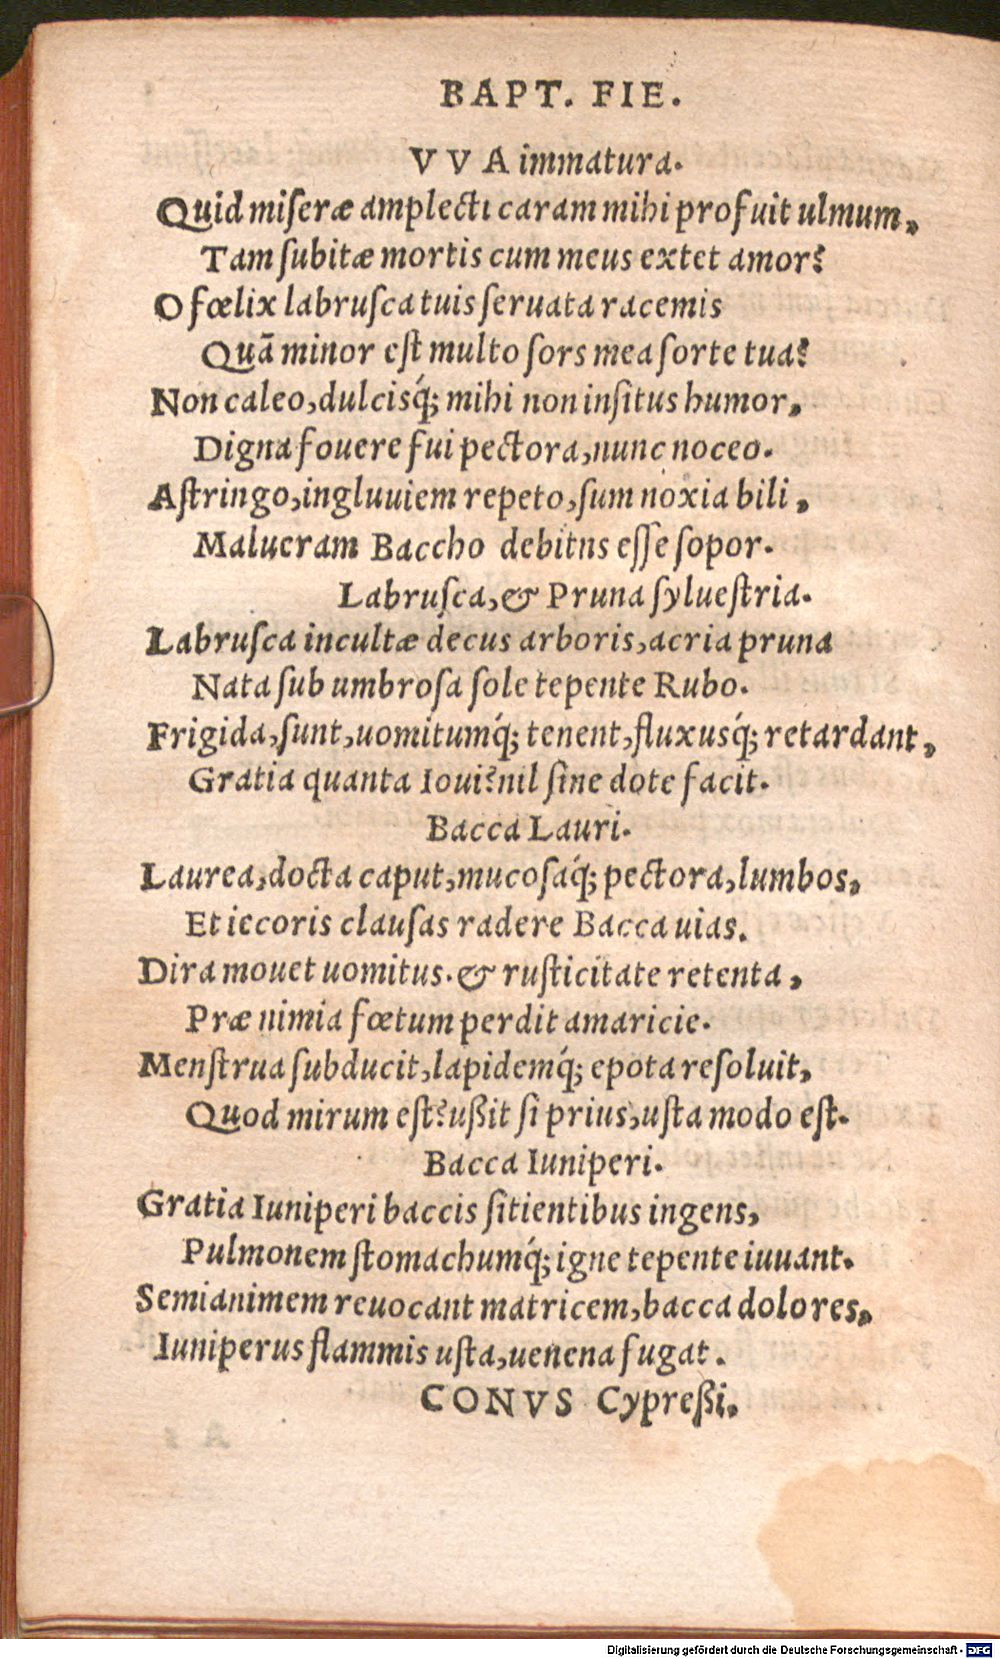 BAPT. FIE.
VVA immatura.
Quid miſeræ amplecti caram mihi profuit ulmum,
Tam ſubitæ mortis cum meus extet amor?
O fœlix labruſca tuis ſeruata racemis
Quã minor eſt multo ſors mea ſorte tua?
Non caleo, dulcisq́; mihi non inſitus humor,
Digna fouere fui pectora, nunc noceo.
Aſtringo, ingluuiem repeto, ſum noxia bili,
Malueram Baccho debitus eſſe ſopor.
Labruſca, & Pruna ſylueſtria.
Labruſca incultæ decus arboris, acria pruna
Nata ſub umbroſa ſole tepente Rubo.
Frigida, ſunt, uomitumq́; tenent, fluxusq́; retardant,
Gratia quanta Ioui? nil ſine dote facit.
Bacca Lauri.
Laurea, docta caput, mucoſaq́; pectora, lumbos,
Et iecoris clauſas radere Bacca uias.
Dira mouet uomitus. & ruſticitate retenta,
Præ nimia fœtum perdit amaricie.
Menſtrua ſubducit, lapidemq́; epota reſoluit,
Quod mirum eſt? ußit ſi prius, uſta modo eſt.
Bacca Iuniperi.
Gratia Iuniperi baccis ſitientibus ingens,
Pulmonem ſtomachumq́; igne tepente iuuant.
Semianimem reuocant matricem, bacca dolores,
Iuniperus flammis uſta, uenena fugat.
CONVS Cypreßi.
Digitalisierung gefördert durch die Deutsche Forschungsgemeinschaft - DFG